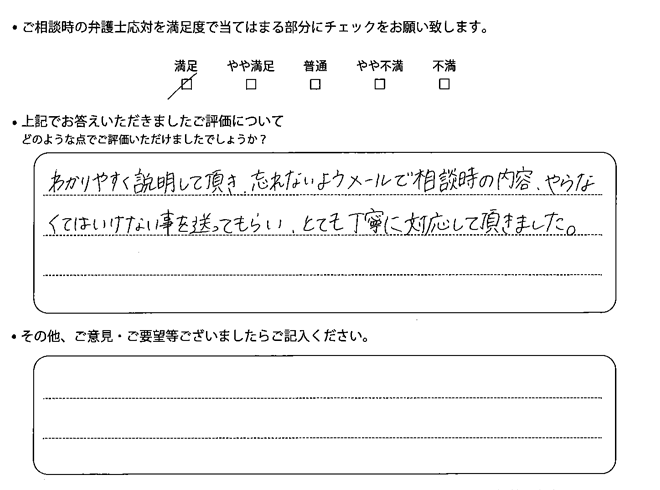 • ご相談時の弁護士応対を満足度で当てはまる部分にチェックをお願い致します。
満足 やや満足 普通 やや不満 不満
• 上記でお答えいただきましたご評価について
どのような点でご評価いただけましたでしょうか？
わかりやすく説明して頂き、忘れないようメールで相談時の内容、やらな
くてはいけない事を送ってもらい、とても丁寧に対応して頂きました。
• その他、ご意見・ご要望等ございましたらご記入ください。